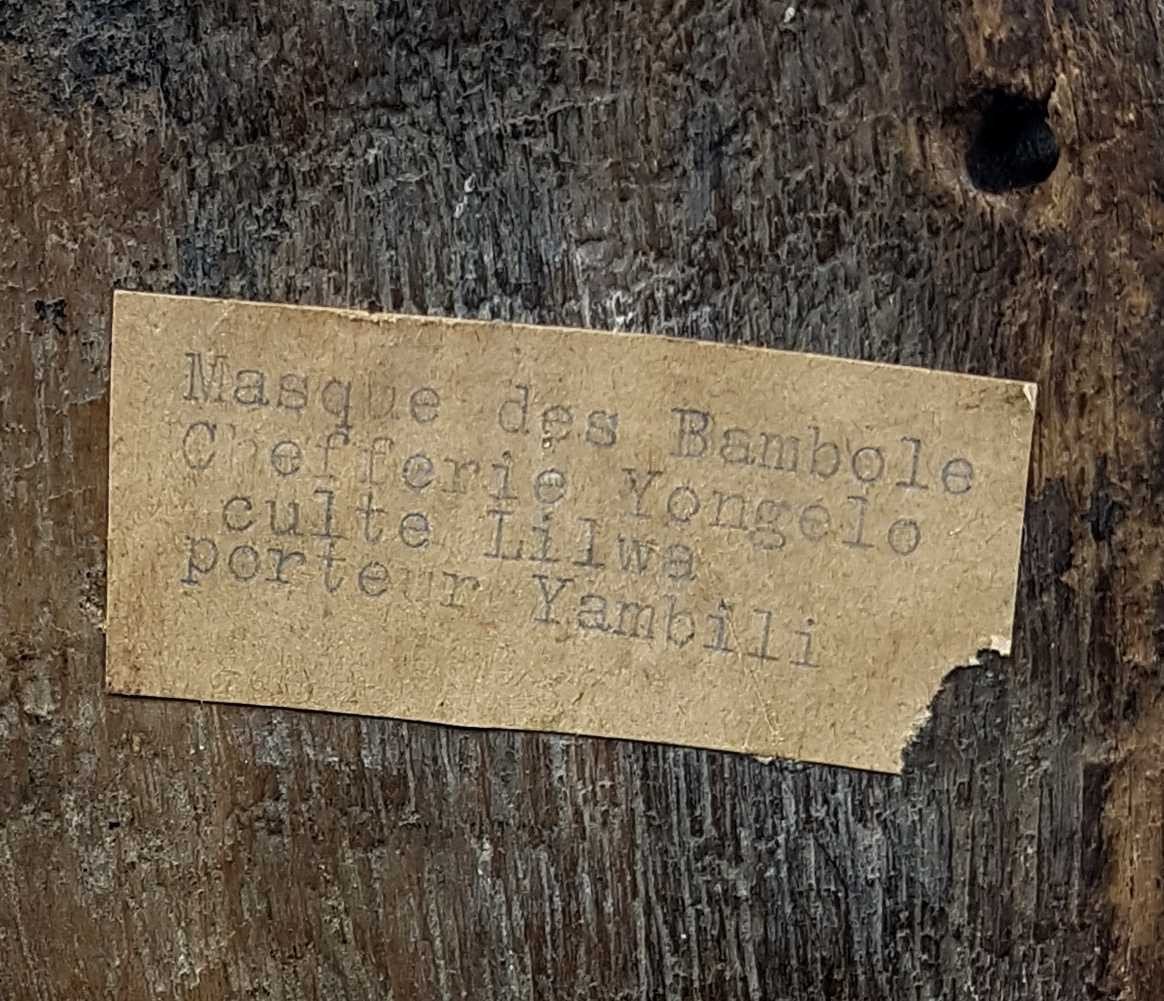 Masque des Bambole
Chefferie Yongelo
culte Lilwa
porteur Yambili